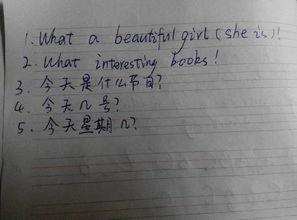 1. What a beautiful girl (she is)!
2. What interesting books!
3. 今天是什么节日?
4. 今天几号?
5. 今天星期几?